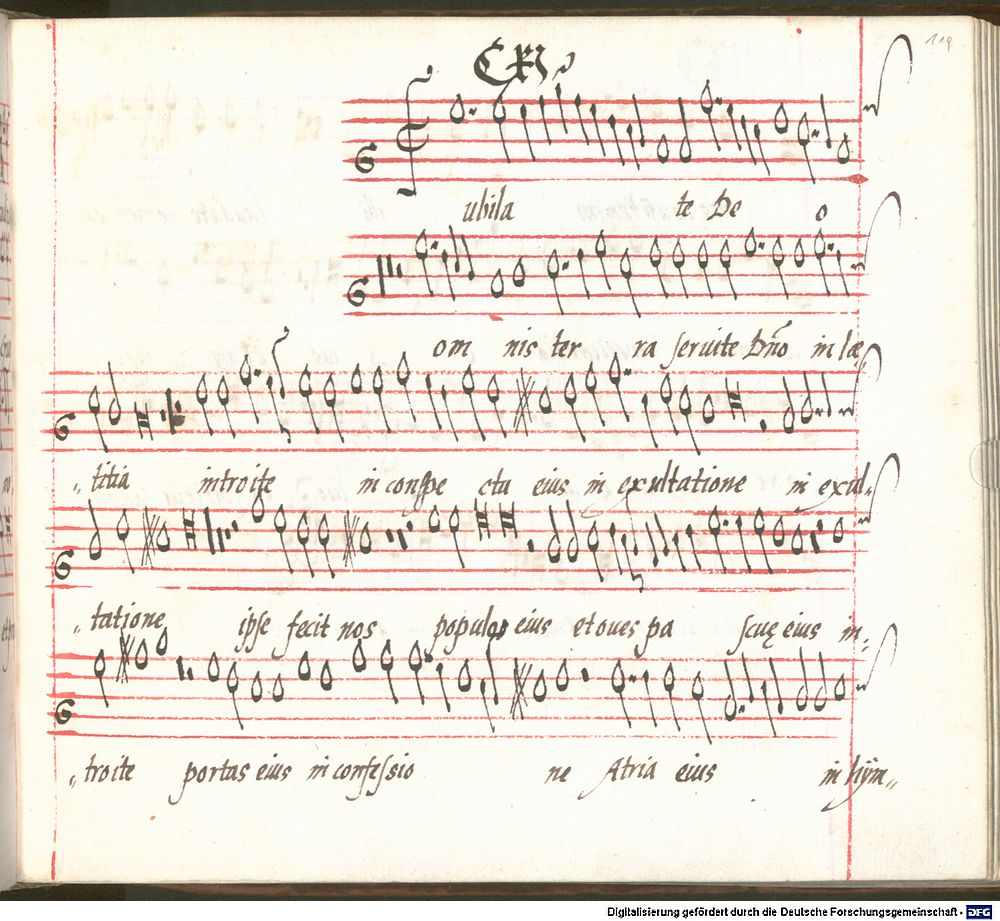 119
ubila te De o
om nis ter ra ſeruite Dño in læ
„ titia introite in conſpe ctu eius in exultatione in exul„
„ tatione ipſe fecit nos populus eius et oues pa ſcuę eius in„
„ troite portas eius in confeſsio ne Atria eius in hÿm„
Digitalisierung gefördert durch die Deutsche Forschungsgemeinschaft - DFG